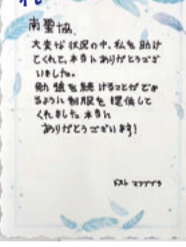 南聖協
大変な状況の中、私を助け
てくれて、本当にありがとうござ
いました。
勉強を続けることができ
るように制服を提供して
くれました 本当に
ありがとうございます!